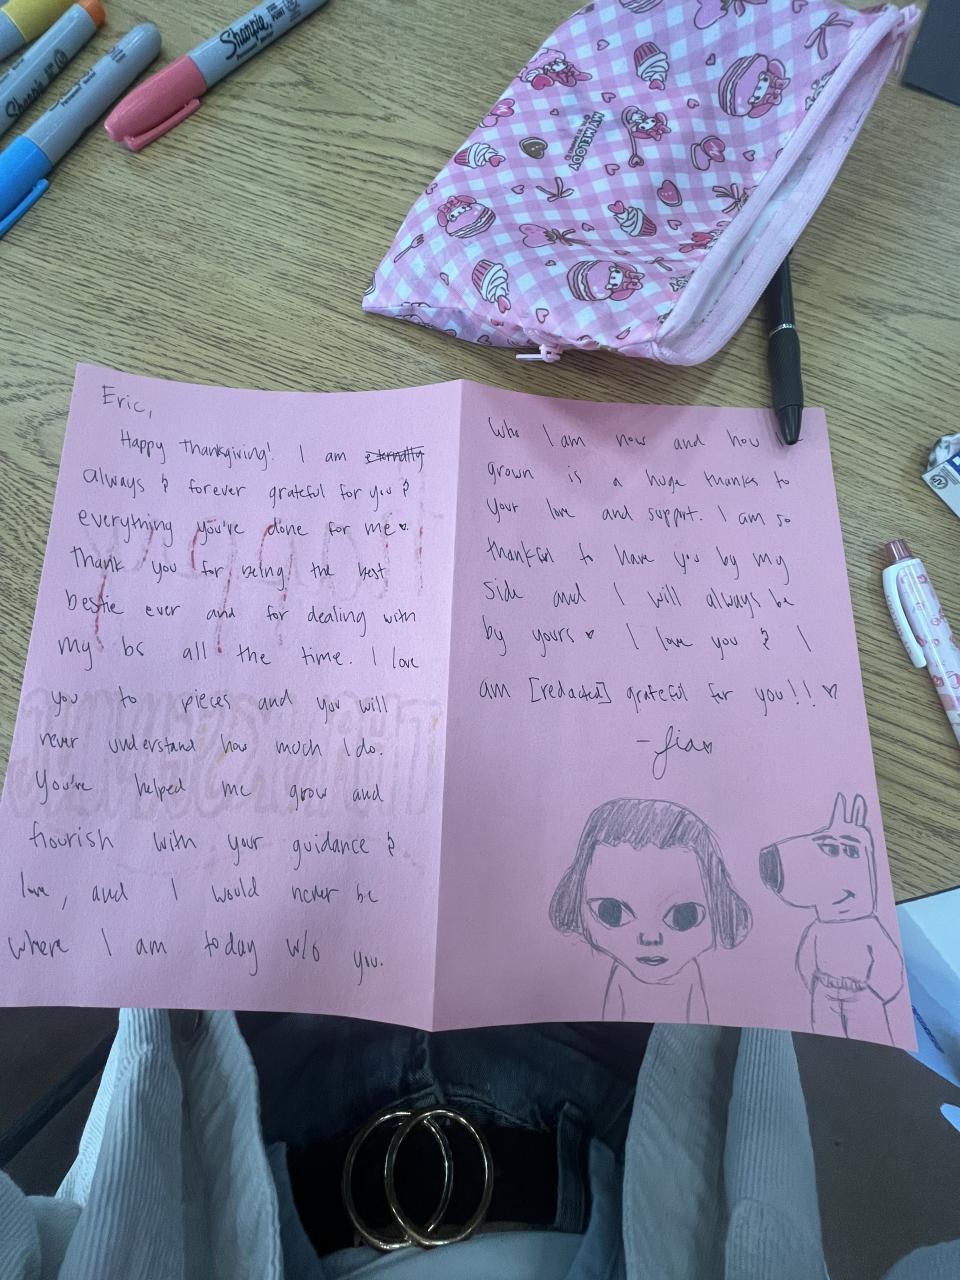 Sharpie
Sharpie
MY MELODY
Eric,
Happy thanksgiving! I am eternally
always & forever grateful for you &
everything you've done for me ♥.
thank you for being the best
bestie ever and for dealing with
my bs all the time. I love
you to pieces and you will
never understand how much I do.
You've helped me grow and
flourish with your guidance &
love, and I would never be
where I am today w/o you.
Who I am now and how
grown is a huge thanks to
your love and support. I am so
thankful to have you by my
side and I will always be
by yours ♥ I love you & I
am [redacted] grateful for you!! ♥
-Jia♥